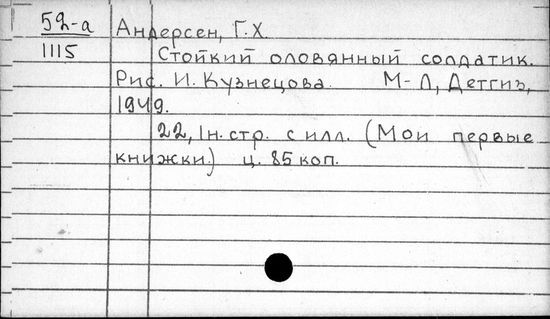 52-а Андерсен, Г.Х.
1115 Стойкий оловянный солдатик.
Рис. И. Кузнецова. М-Л, Детгиз,
1949.
22, 1н. стр. с илл. (Мои первые
книжки.) ц. 85 коп.